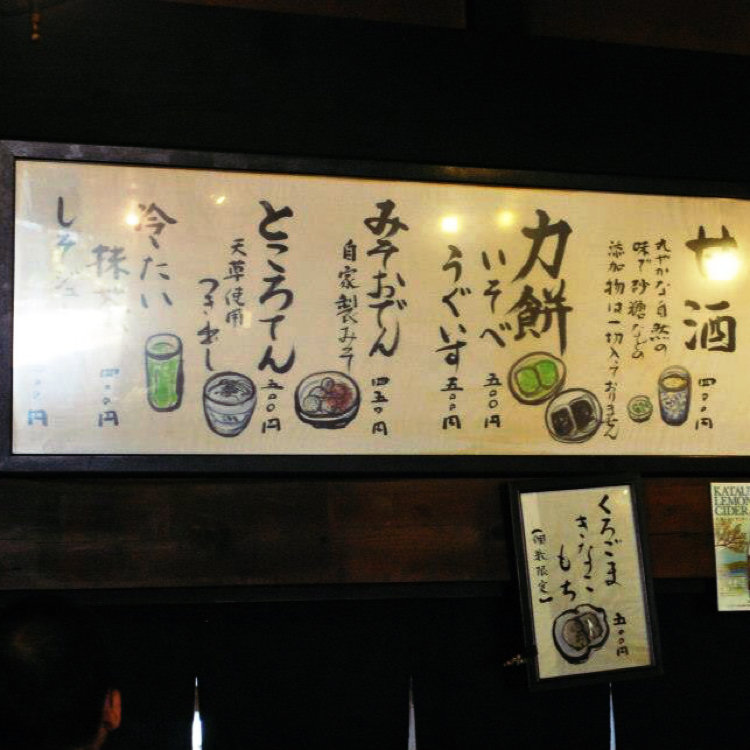 甘酒
丸やかな自然の
味で砂糖などの
添加物は一切入っておりません
四〇〇円
力餅
いそべ
五〇〇円
うぐいす
五〇〇円
みそおでん
自家製みそ
四五〇円
ところてん
天草使用
つき出し
五〇〇円
冷たい
抹茶
四〇〇円
しそジュ
〇〇円
くろごま
きなこ
もち
【個数限定】
五〇〇円
KATAU
LEMON
CIDER